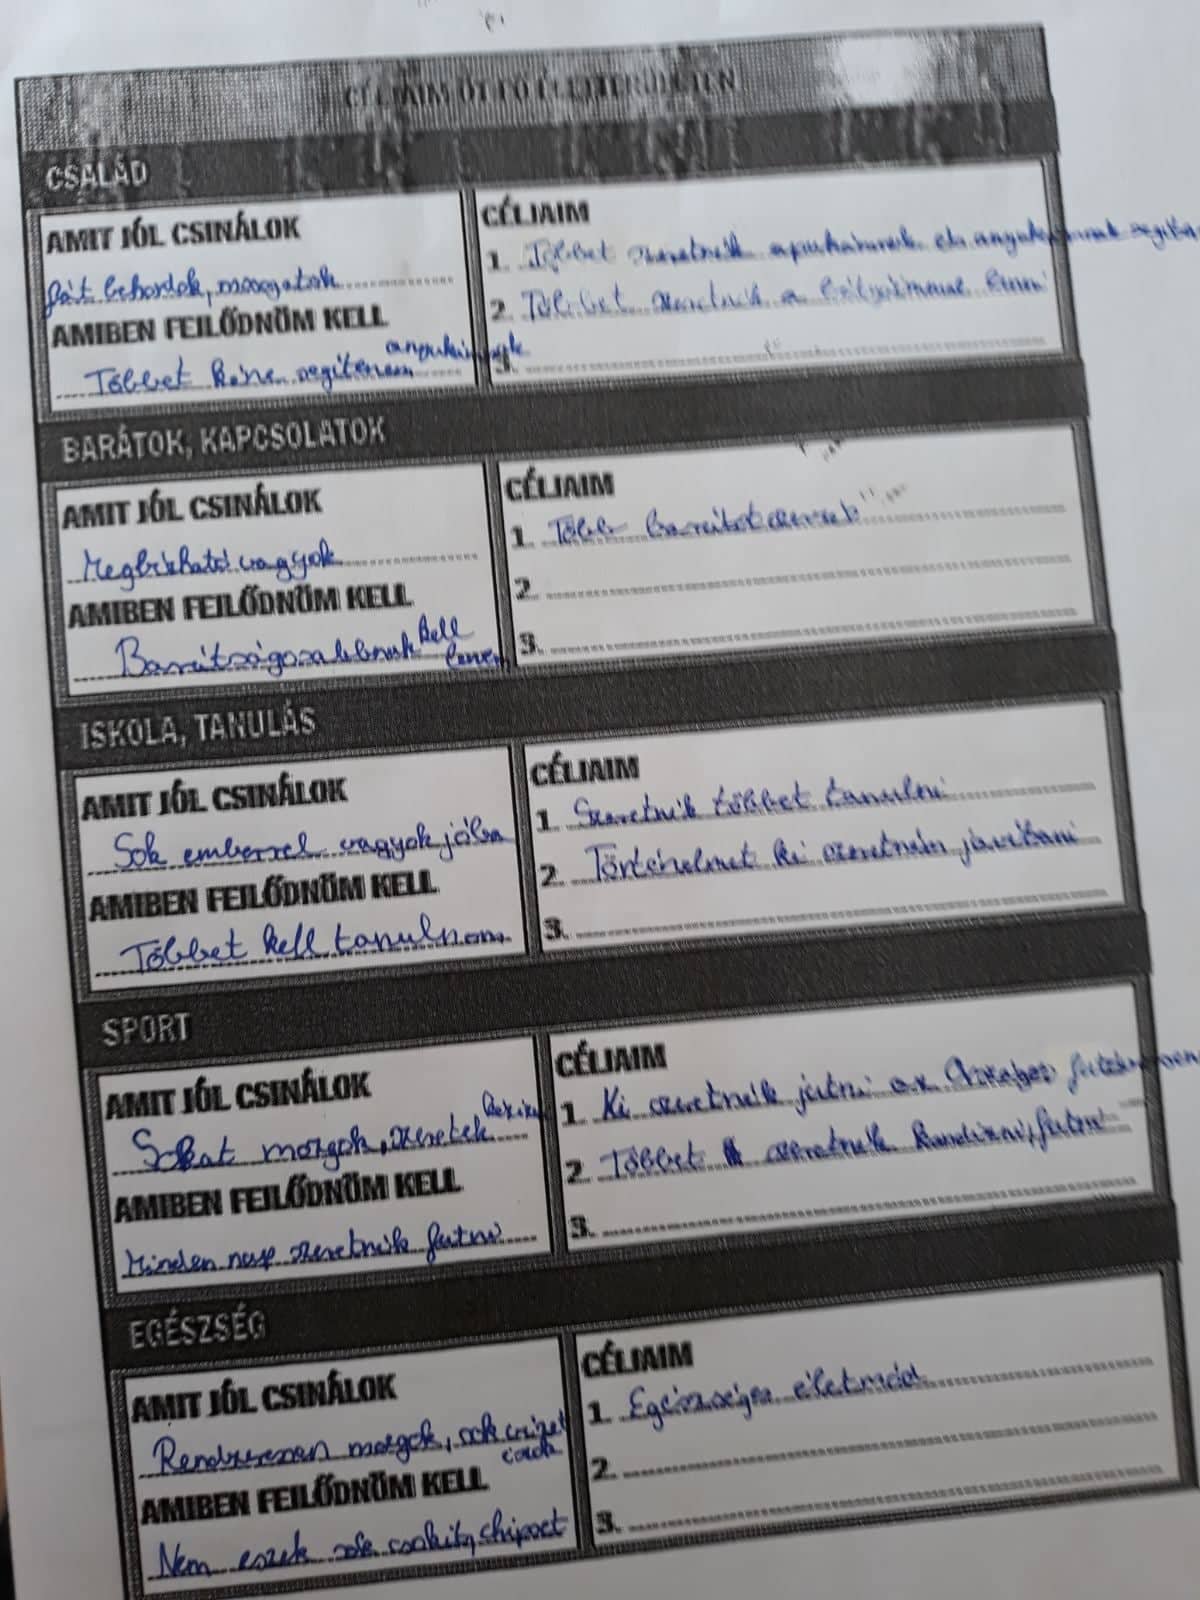 CÉLJAIM ÖT FŐ ÉLETTERÜLETEN
CSALÁD
AMIT JÓL CSINÁLOK
fát behordok, mosogatok
AMIBEN FEJLŐDNÖM KELL
Többet kéne segítenem anyukámnak
CÉLJAIM
1. Többet szeretnék apukámnak és anyukámnak
2. Többet szeretnék a lenni
3.
BARÁTOK, KAPCSOLATOK
AMIT JÓL CSINÁLOK
Megbízható vagyok
AMIBEN FEJLŐDNÖM KELL
Barátságosabbnak kell lenem
CÉLJAIM
1. Több barátot
2.
3.
ISKOLA, TANULÁS
AMIT JÓL CSINÁLOK
Sok emberrel vagyok jóba
AMIBEN FEJLŐDNÖM KELL
Többet kell tanulnom
CÉLJAIM
1. Szeretnék többet tanulni
2. Történelmet ki szeretném javítani
3.
SPORT
AMIT JÓL CSINÁLOK
Sokat mozgok, szeretek
AMIBEN FEJLŐDNÖM KELL
Minden nap szeretnék futni
CÉLJAIM
1. Ki szeretnék jutni az
2. Többet szeretnék kondizni, futni
3.
EGÉSZSÉG
AMIT JÓL CSINÁLOK
Rendszeresen mozgok, sok vizet
AMIBEN FEJLŐDNÖM KELL
Nem eszek sok csokit, chipset
CÉLJAIM
1. Egészséges életmód
2.
3.